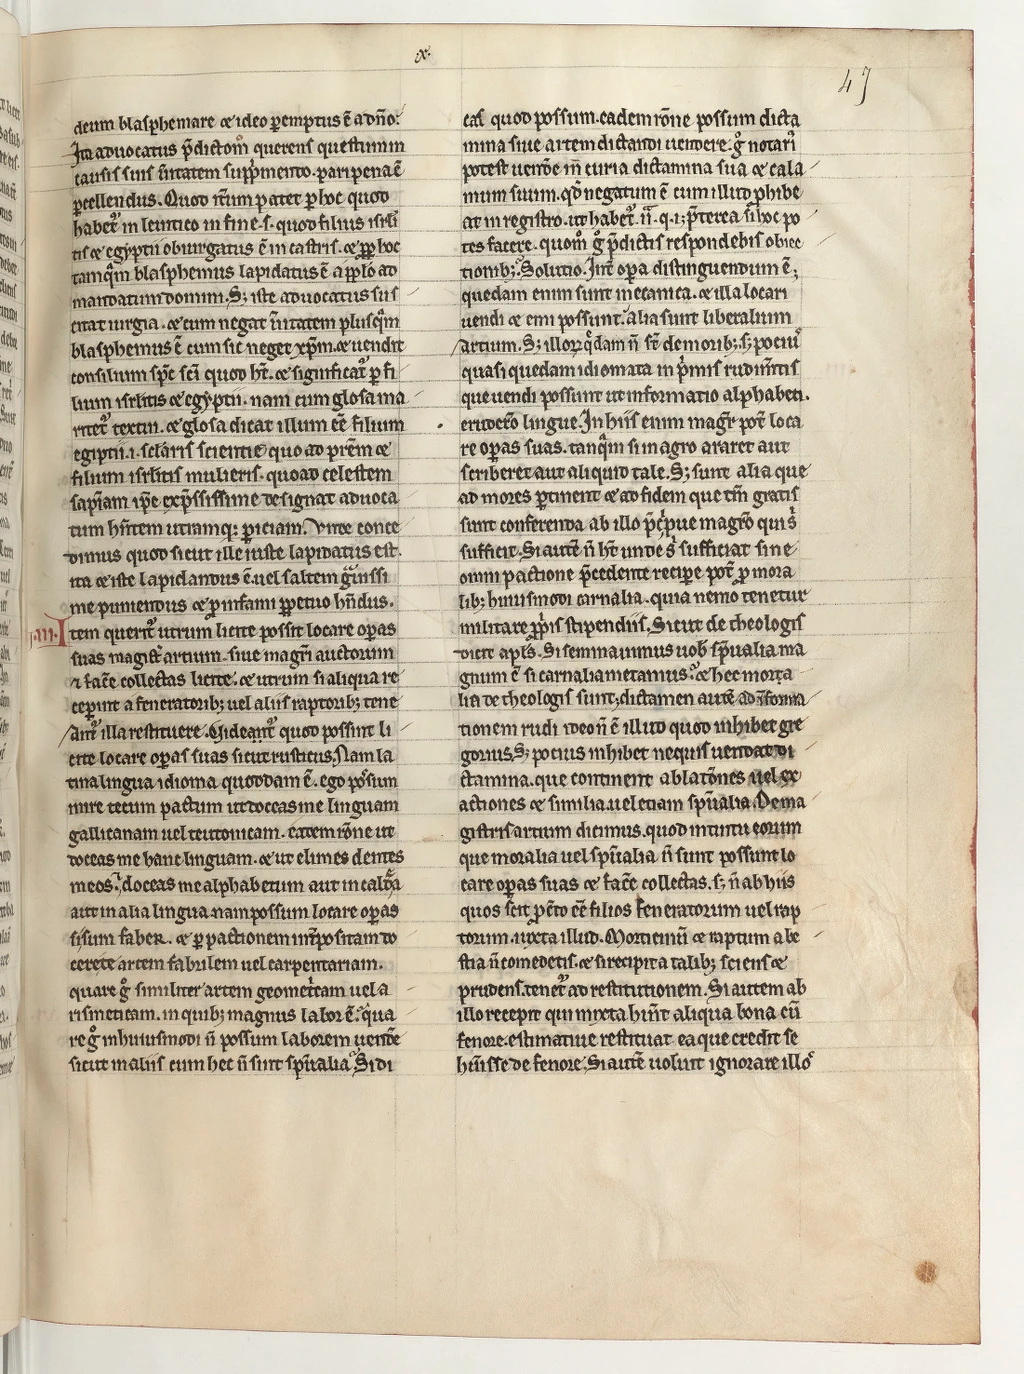 .x.
47
deum blasphemare ⁊ ideo ꝑemptus ē a dn̄o.
Ita aduocatus p̄dictoꝝ querens questum in
causis suis ūitatem supp̄mendo. pari pena ē
ꝑcellendus. Quod iteꝝ patet ꝑ hoc quod
habet᷑ in leuitico in fine .s. quod filius isrli
tis ⁊ egyptii obiurgatus ē in castris. ⁊ ꝓpꝑ hoc
tanq̄m blasphemus lapidatus ē a pp̄lo ad
mandatum domini. Sꝫ iste aduocatus sus
citat iurgia. ⁊ cum negat ūitatem plusq̄m
blasphemus ē cum sic neget xp̄m. ⁊ uendit
consilium sp̄c sc̄i quod hꝫ. ⁊ significat᷑ ꝑ fi
lium isrlitis ⁊ egyptii. nam cum glosa ma
ritet᷑ textui. ⁊ glosa dicat illum eē filium
egiptii .i. sc̄laris scientie quo ad prēm ⁊
filium isrlitis mulieris. quo ad celestem
sapīam ip̄e exp̄ssissime designat aduoca
tum hn̄tem utramqꝫ ꝑiciam. Vnde conce
dimus quod sicut ille iuste lapidatus est.
ita ⁊ iste lapidandus ē. uel saltem g̑uissi
me puniendus ⁊ ꝑ infami ꝑpetuo hn̄dus.
Item querit᷑ utrum licite possit locare opas
suas magist᷑ artium siue magr̄i auctorum
⁊ facē collectas licite. ⁊ utrum si aliqua re
ceperint a feneratoribꝫ uel aliis raptoribꝫ tene
ant᷑ illa restituere. Videant᷑ quod possint li
cite locare opas suas sicut rusticus. Nam la
tina lingua idioma quoddam ē. ego possum
inire tecum pactum ut doceas me linguam
gallicanam uel teutonicam. eadem rōne ut
doceas me hanc linguam. ⁊ ut elimes dentes
meos. doceas me alphabetum aut in caldea
aut in alia lingua. nam possum locare opas
sicut faber. ⁊ ꝑ pactionem int̄positam do
cere te artem fabrilem uel carpentariam.
quare g̊ similiter artem geometcam uel a
rismeticam. in quibꝫ magnus labor ē. qua
re g̊ in huiusmodi n̄ possum laborem uendē
sicut in aliis cum hec n̄ sint sp̄ualia. Si di
cas quod possum. eadem rōne possum dicta
mina siue artem dictandi uendere. g̊ notari᷑
potest uendē in curia dictamina sua ⁊ cala
mum suum. qđ negatum ē cum illud ꝓhibe
at in registro. ut habet᷑ .ii. q. i. p̄terea si hoc po
tes facere. quom̊ g̊ p̄dictis respondebis obiec
tionibꝫ. Solutio. Int̄ opa distinguendum ē.
quedam enim sunt mecanica. ⁊ illa locari
uendi ⁊ emi possunt. alia sunt liberalium
artium. Sꝫ illoꝝ q̄dam n̄ sc̄ de moribꝫ. sꝫ pociᷣ
quasi quedam idiomata in p̄mis rudim̄tis
que uendi possunt ut informatio alphabeti.
erudicō lingue. In hiis enim magr̄ pot̄ loca
re opas suas. tanq̄m si in agro araret aut
scriberet aut aliquid tale. Sꝫ sunt alia que
ad mores ꝑtinent ⁊ ad fidem que tm̄ gratis
sunt conferenda ab illo p̄cipue magr̄o qui s
sufficit. Si autē n̄ hꝫ unde s sufficiat sine
omni pactione p̄cedente recipe pot̄ ꝑ mora
libꝫ huiusmodi carnalia. quia nemo tenetur
militare ꝓp̄is stipendiis. Sicut de theologis
dicit apls. Si seminauimus uob sp̄ualia ma
gnum ē si carnalia metamus. ⁊ hec mora
lia de theologis sunt. dictamen autē ad Iforma
tionem rudi ideo n̄ ē illud quod inhibet gre
gorius. Sꝫ pocius inhibet nequis uendat di
ctamina. que continent ablatōnes uel ex
actiones ⁊ similia. uel etiam sp̄ualia. De ma
gistris artium dicimus. quod intuitu eorum
que moralia uel sp̄ualia n̄ sunt possunt lo
care opas suas ⁊ facē collectas. sꝫ n̄ ab hiis
quos scit ꝑcto eē filios feneratorum uel rap
torum. iuxta illud. Morticinū ⁊ raptum a be
stia n̄ comedetis. ⁊ si recipit a talibꝫ sciens ⁊
prudens. tenet᷑ ad restitutionem. Si autem ab
illo recepit qui mixta hūit aliqua bona cū
fenore. estimatiue restituat ea que credit se
hūisse de fenore. Si autē uolunt ignorare illoꝝ